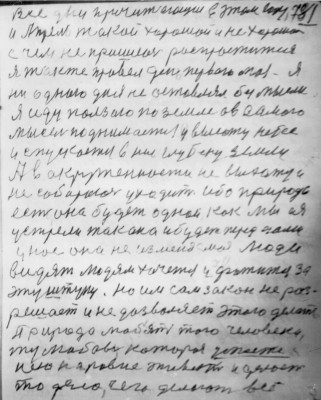 Все дни причитающи в этом году 1981
и Апрель такой хороший и не хороший
с чем не пришлось распроститься
я также провел день первого мая. Я
ни одного дня не оставлял без мысли
Я иду ползаю по земле а в самого
мысль поднимается у высоту небес
и спускается в низ глубину земли
А в окруженности не вижу и
не собираюсь уходить ибо природа
есть она будет одной как мы ея
устрели така она и будет перед нами
у нас она не изменя моя Люди
видят людям хочется и
эту штуку. Но им сам закон не раз-
решает и не дозволяет этого делать
Природа любит того человека,
ту любовь которая
нею наравне живет и делает
то дело, чего делают все